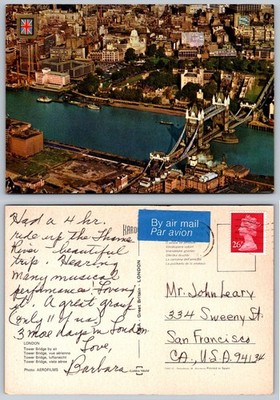 Had a 4 hr.
ride up the Thames
River - beautiful
trip. Hearing
many musical
performances. Loving
it! A great group
(only 11 of us)
3 more days in London
Love,
Barbara
LONDON
Tower Bridge by air
Tower Bridge, vue aérienne
Tower Bridge, Luftansicht
Tower Bridge, vista aérea
Photo: AEROFILMS
Great Britain - LONDON
By air mail
Par avion
26
Mr. John Leary
334 Sweeny St.
San Francisco
CA, USA 94134